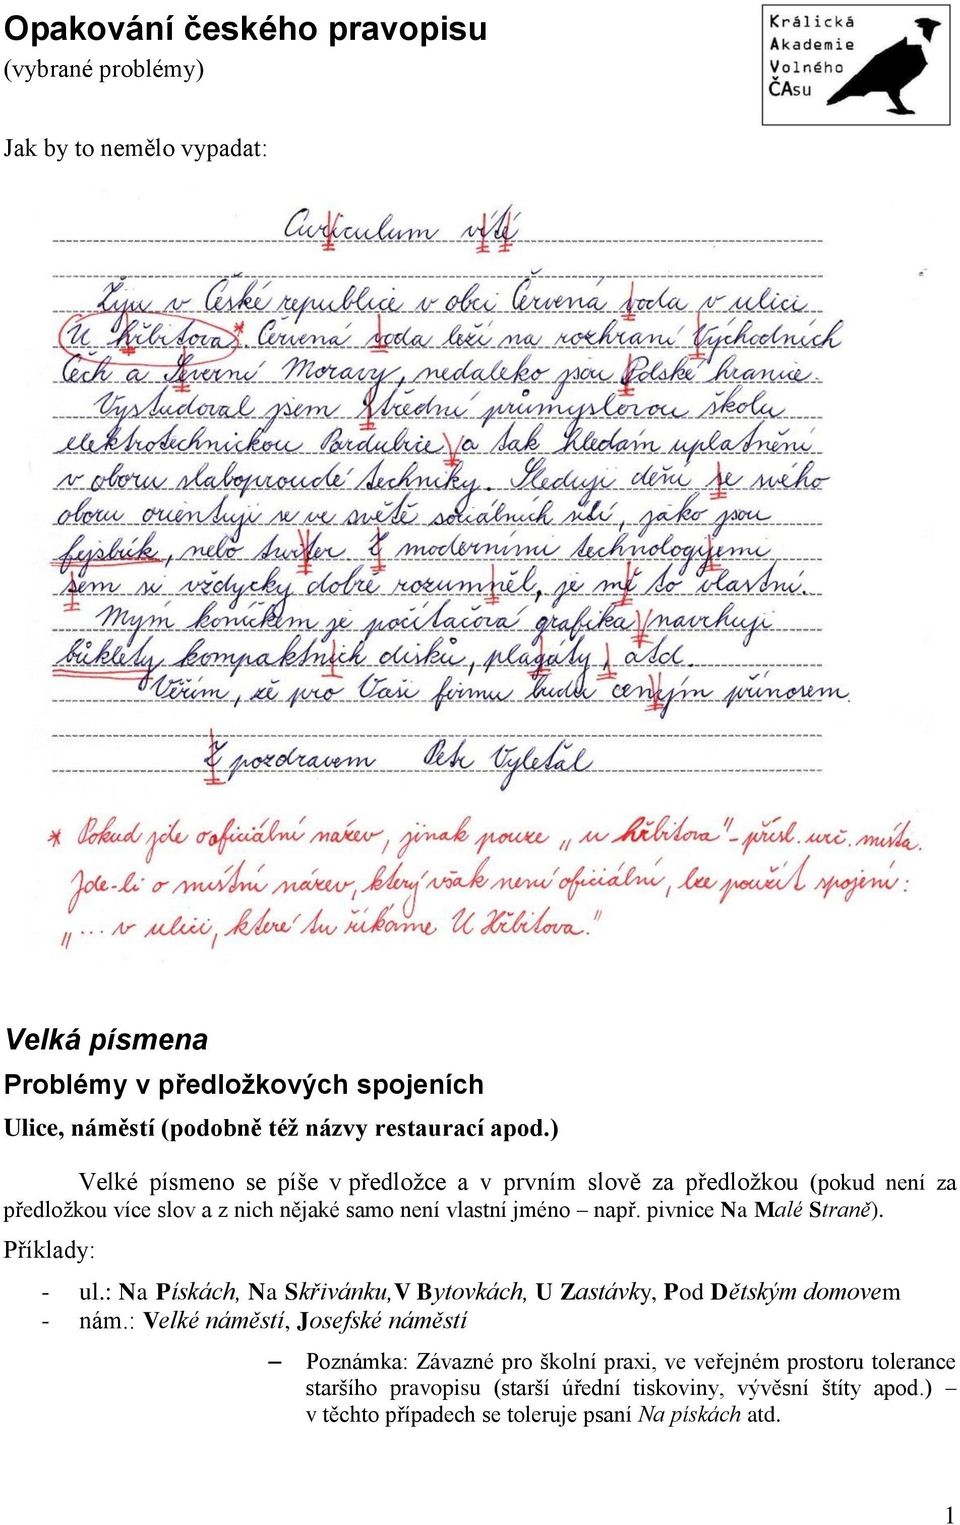 Opakování českého pravopisu
(vybrané problémy)
Králická
Akademie
Volného
ČAsu
Jak by to nemělo vypadat:
Curiculum víté
Žiju v České republice v obci Červená voda v ulici
U hřbitova*. Červená voda leží na rozhraní Východních
Čech a Severní Moravy, nedaleko jsou Polské hranice.
Vystudoval jsem Střední průmyslovou školu
elektrotechnickou Pardubice a tak hledám uplatnění
v oboru slaboproudé techniky. Sleduji dění se svého
oboru orientuji se ve světě sociálních sítí, jako jsou
fejsbúk, nebo twiter. Z moderními technologijemi
sem si vždycky dobře rozumněl, je mě to vlastní.
Mým koníčkem je počítačová grafika navrhuji
bůklety kompaktních disků, plagáty, atd.
Věřím, že pro Vaši firmu budu cenným přínosem.
Z pozdravem Petr Vyletěl
* Pokud jde o oficiální název, jinak pouze „u hřbitova" – přísl. urč. místa.
Jde-li o místní název, který však není oficiální, lze použít spojení:
„... v ulici, které tu říkáme U Hřbitova."
Velká písmena
Problémy v předložkových spojeních
Ulice, náměstí (podobně též názvy restaurací apod.)
Velké písmeno se píše v předložce a v prvním slově za předložkou (pokud není za
předložkou více slov a z nich nějaké samo není vlastní jméno – např. pivnice Na Malé Straně).
Příklady:
- ul.: Na Pískách, Na Skřivánku,V Bytovkách, U Zastávky, Pod Dětským domovem
- nám.: Velké náměstí, Josefské náměstí
– Poznámka: Závazné pro školní praxi, ve veřejném prostoru tolerance
staršího pravopisu (starší úřední tiskoviny, vývěsní štíty apod.) –
v těchto případech se toleruje psaní Na pískách atd.
1